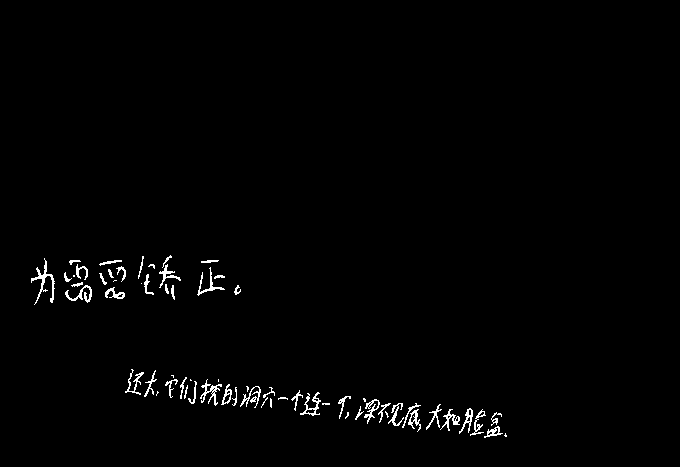 为需要矫正。
还大,它们挖的洞穴一个连一个,深不见底,大和脸盆.